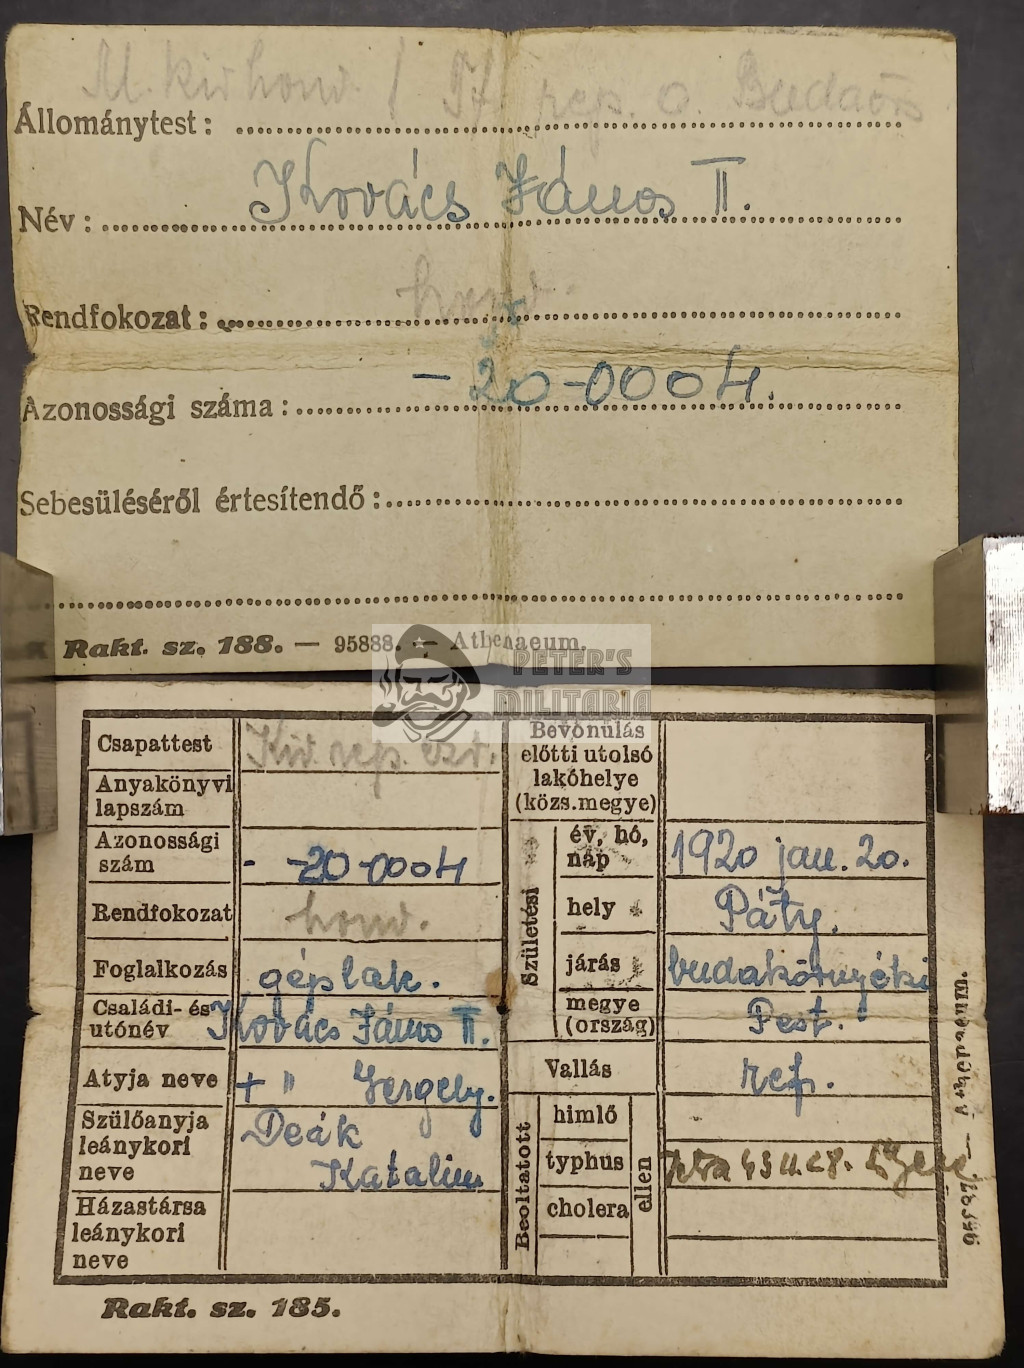 M. kir. honv. / rep. o. Budaörs
Állománytest:
Név: Kovács János II.
Rendfokozat: honv.
Azonossági száma: - 20-0004.
Sebesüléséről értesítendő:
Rakt. sz. 188. — 95888. — Athenaeum.
PETER'S
MILITARIA
Csapattest Kir. rep. ezr.
Anyakönyvi
lapszám
Azonossági
szám - -20-0004
Rendfokozat honv.
Foglalkozás géplak.
Családi- és
utónév Kovács János II.
Atyja neve + " Gergely.
Szülőanyja
leánykori
neve
Deák
Katalin
Házastársa
leánykori
neve
Bevonulás
előtti utolsó
lakóhelye
(közs. megye)
Születési
év, hó,
nap 1920 jan. 20.
hely Páty.
járás budakörnyéki
megye
(ország) Pest.
Vallás ref.
Beoltatott
himlő
typhus
cholera
ellen
Rakt. sz. 185.
Athenaeum.